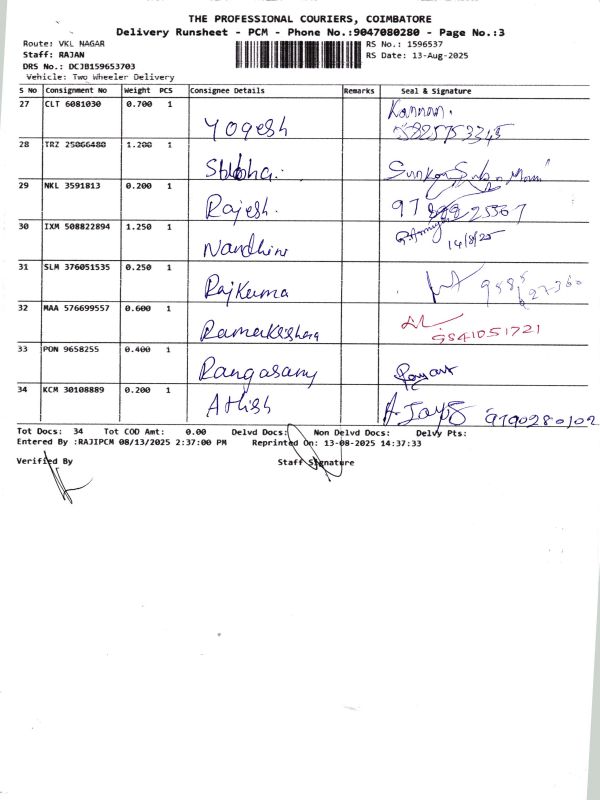 THE PROFESSIONAL COURIERS, COIMBATORE
Delivery Runsheet - PCM - Phone No.:9047080280 - Page No.:3
Route: VKL NAGAR
RS No.: 1596537
Staff: RAJAN
RS Date: 13-Aug-2025
DRS No.: DCJB159653703
Vehicle: Two Wheeler Delivery
S No Consignment No Weight PCS Consignee Details Remarks Seal & Signature
27 CLT 6081030 0.700 1 Yogesh Kannan.
28 TRZ 25066480 1.200 1
29 NKL 3591813 0.200 1 Rajesh.
30 IXM 508822894 1.250 1 Nandhini 14/8/25
31 SLM 376051535 0.250 1 RajKuma
32 MAA 576699557 0.600 1 9841051721
33 PON 9658255 0.400 1 Rangasamy
34 KCM 30108889 0.200 1 Athish 9790280102
Tot Docs: 34 Tot COD Amt: 0.00 Delvd Docs: Non Delvd Docs: Delvy Pts:
Entered By :RAJIPCM 08/13/2025 2:37:00 PM Reprinted On: 13-08-2025 14:37:33
Verified By Staff Signature